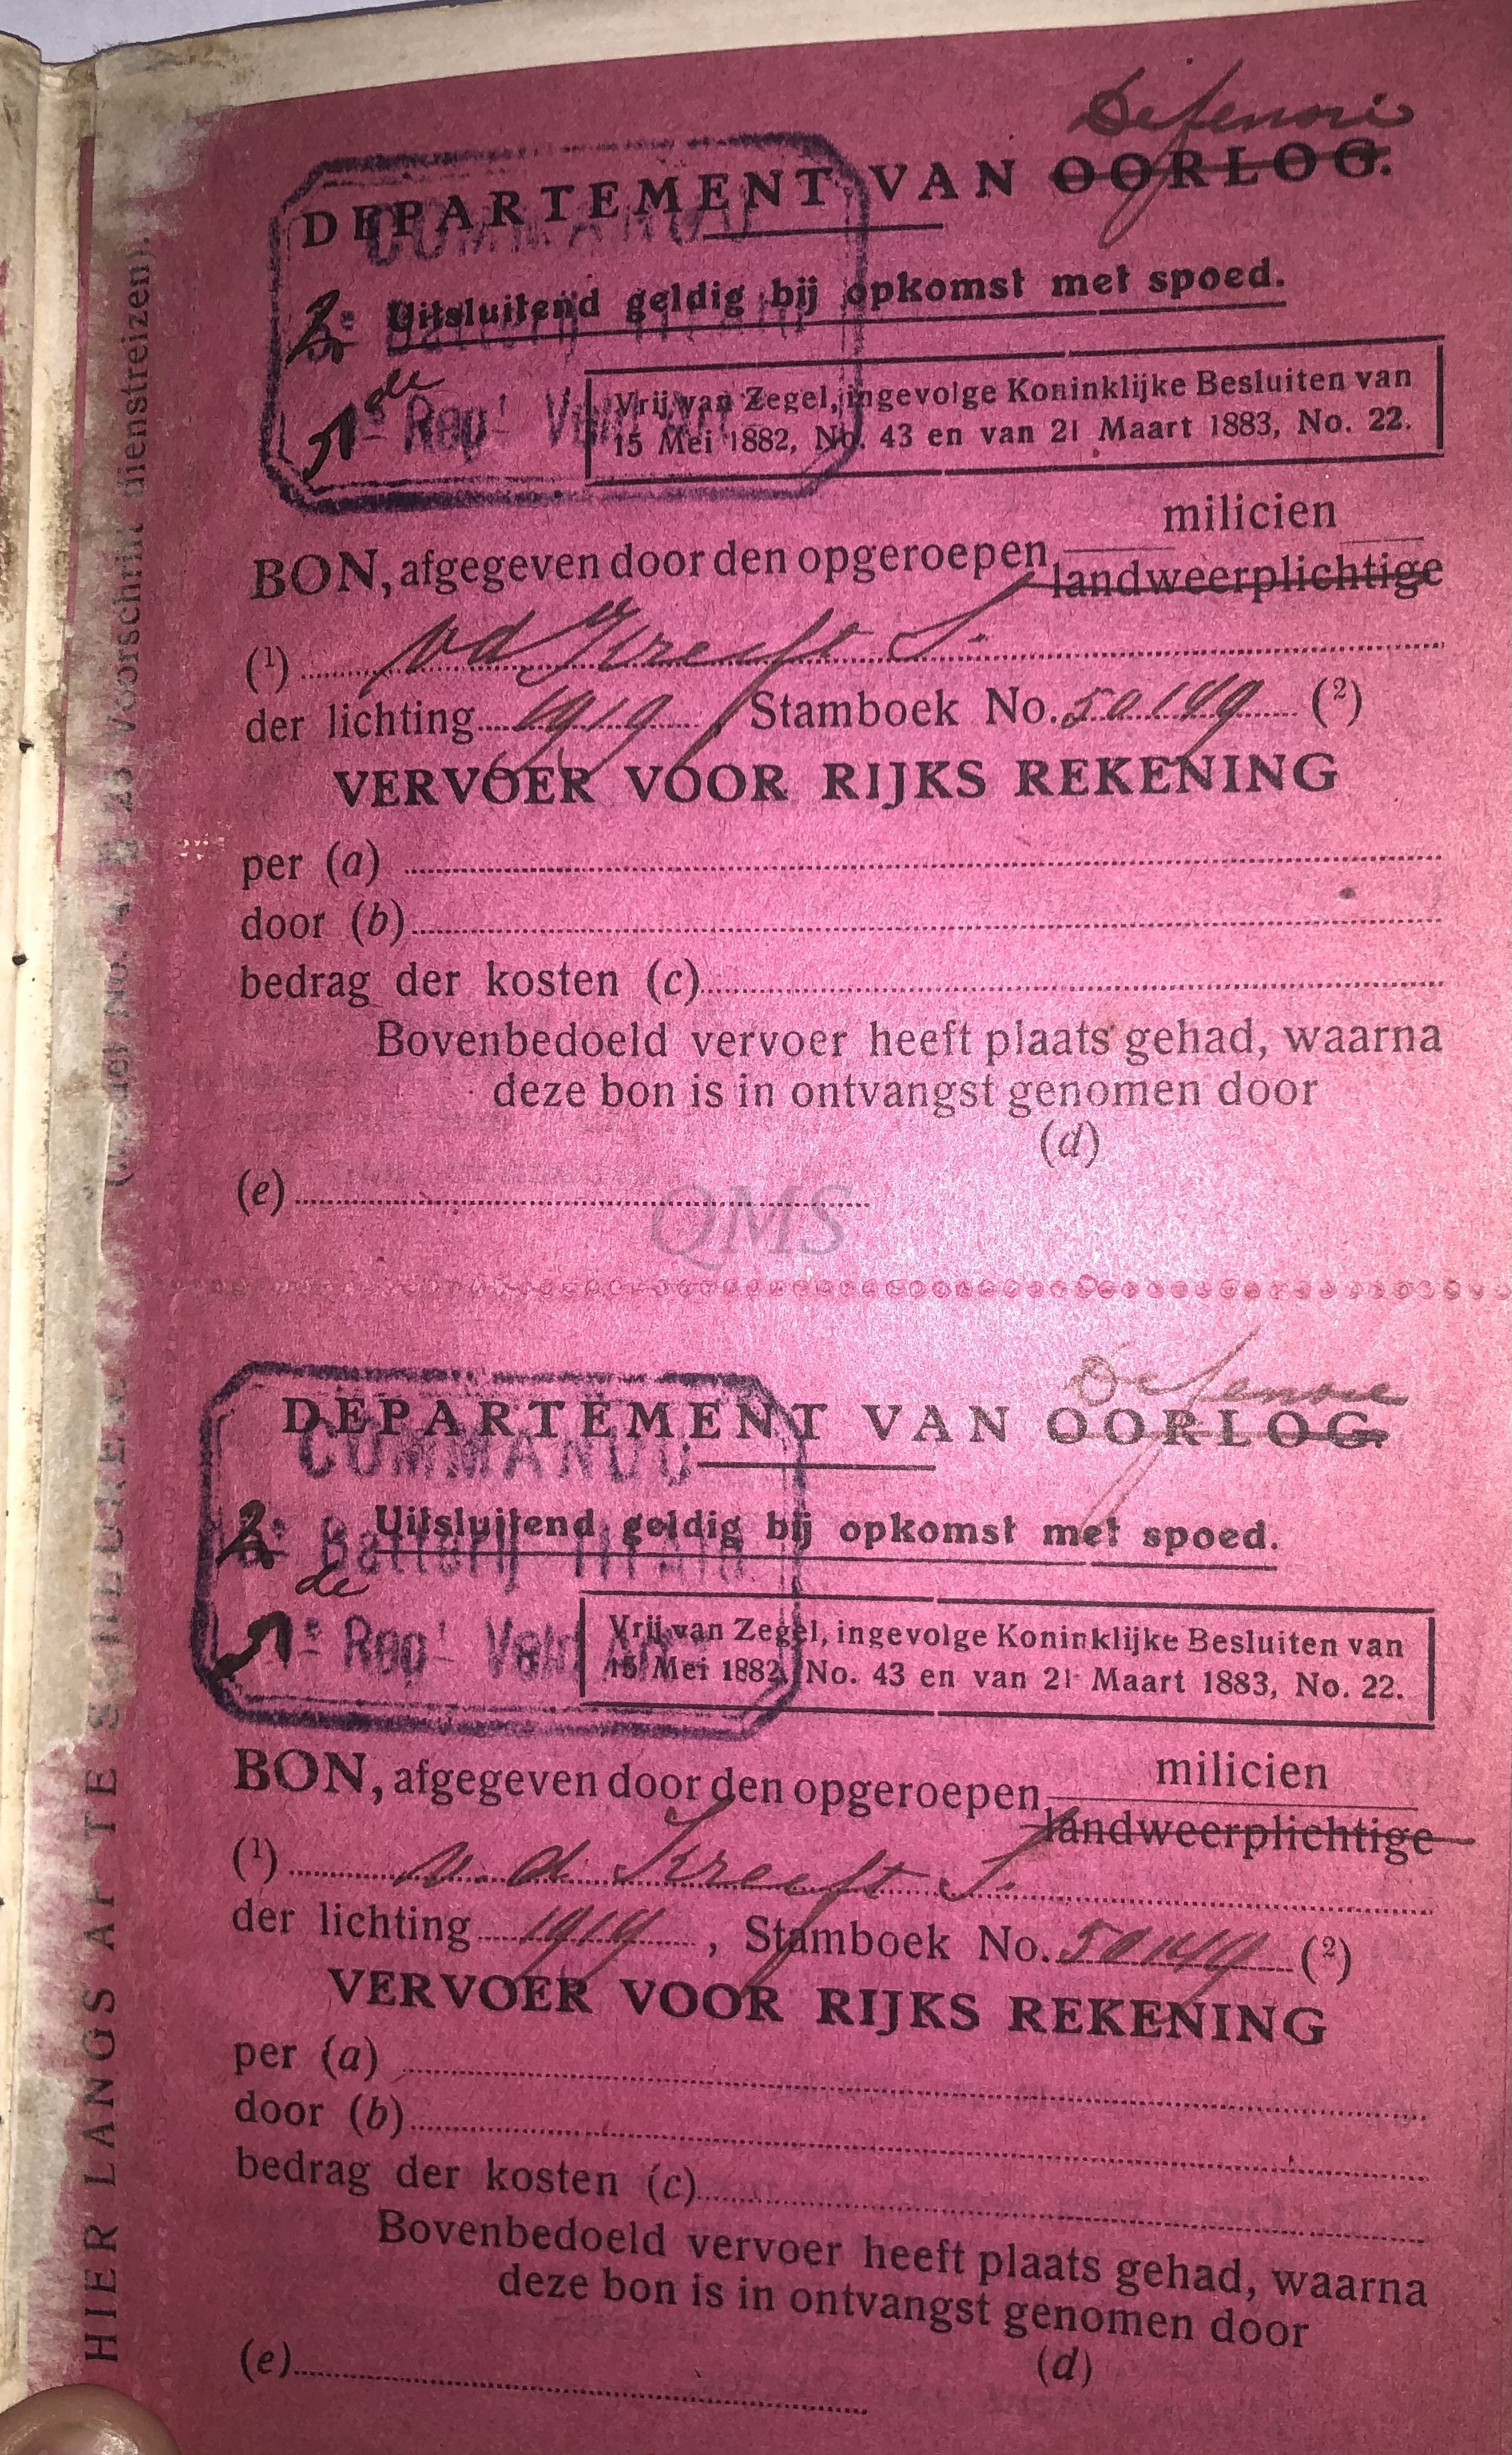 Defensie
DEPARTEMENT VAN OORLOG.
COMMANDO
Uitsluitend geldig bij opkomst met spoed.
2e Batterij
de
Reg.t Veld Art.
Vrij van Zegel, ingevolge Koninklijke Besluiten van
15 Mei 1882, No. 43 en van 21 Maart 1883, No. 22.
milicien
BON, afgegeven door den opgeroepen
landweerplichtige
(1) vd Kreeft S.
der lichting 1919, Stamboek No. 50149 (2)
VERVOER VOOR RIJKS REKENING
per (a)
door (b)
bedrag der kosten (c)
Bovenbedoeld vervoer heeft plaats gehad, waarna
deze bon is in ontvangst genomen door
(d)
(e)
QMS
Defensie
DEPARTEMENT VAN OORLOG.
COMMANDO
Uitsluitend geldig bij opkomst met spoed.
2e Batterij
de
Reg.t Veld Art.
Vrij van Zegel, ingevolge Koninklijke Besluiten van
15 Mei 1882, No. 43 en van 21 Maart 1883, No. 22.
milicien
BON, afgegeven door den opgeroepen
landweerplichtige
(1) v. d. Kreeft S.
der lichting 1919, Stamboek No. 50149 (2)
VERVOER VOOR RIJKS REKENING
per (a)
door (b)
bedrag der kosten (c)
Bovenbedoeld vervoer heeft plaats gehad, waarna
deze bon is in ontvangst genomen door
(d)
(e)
HIER LANGS AF TE
Voorschrift dienstreizen).